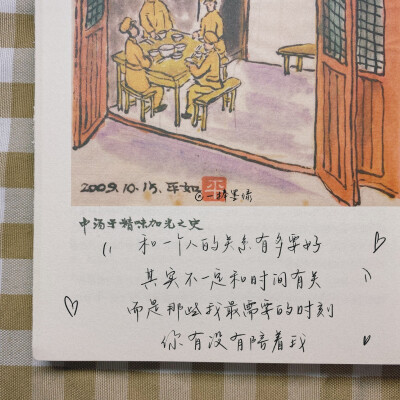 2009.10.15.平如
平
和一个人的关系有多要好
其实不一定和时间有关
而是那些我最需要的时刻
你有没有陪着我